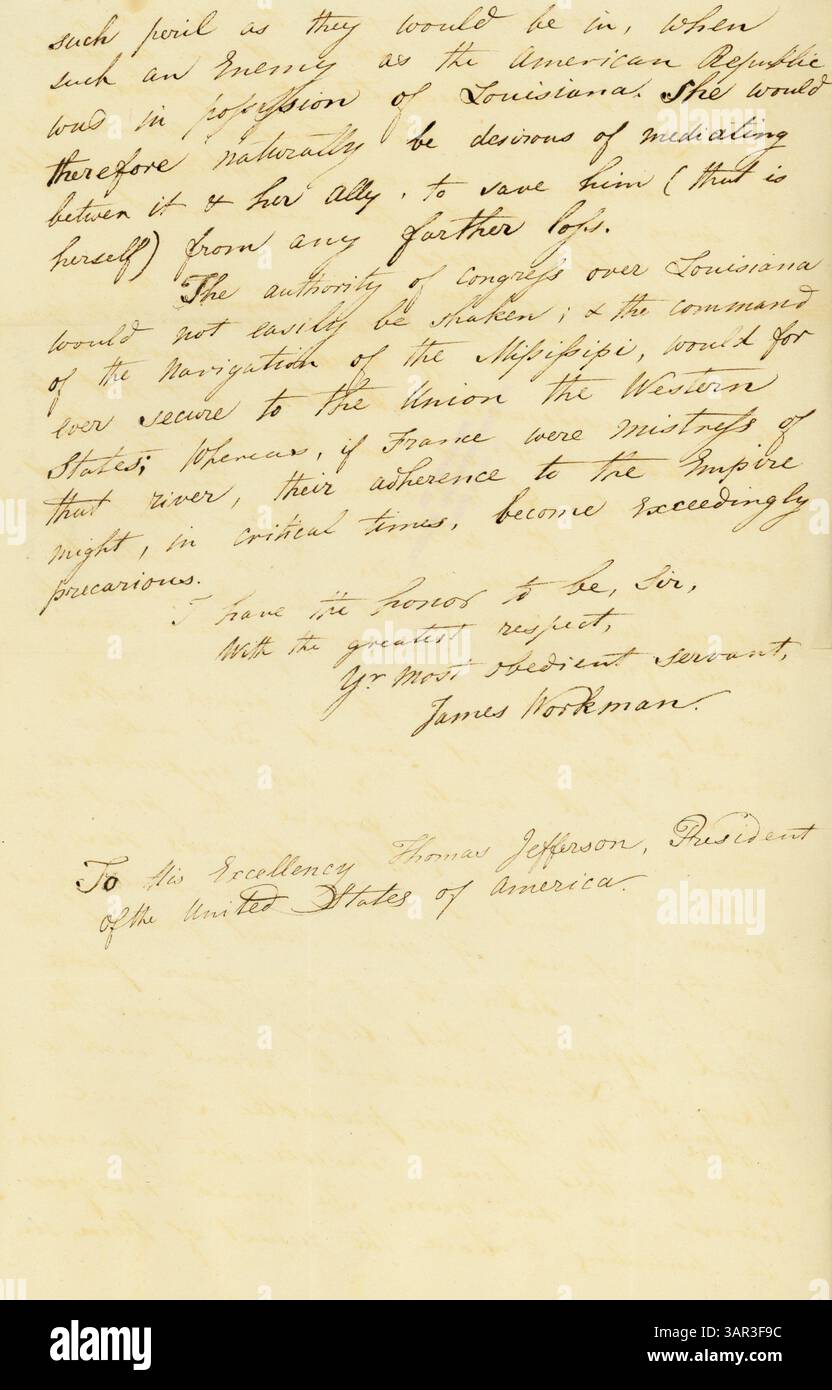 such peril as they would be in, when
such an Enemy as the American Republic
was in possession of Louisiana. She would
therefore naturally be desirous of mediating
betwen it & her ally, to save him (that is
herself) from any farther loss.
The authority of Congress over Louisiana
would not easily be shaken; & the command
of the Navigation of the Missisippi, would for
ever secure to the Union the Western
States; Whereas, if France were mistress of
that river, their adherence to the Empire
might, in critical times, become exceedingly
precarious.
I have the honor to be, Sir,
With the greatest respect,
Yr most obedient servant,
James Workman.
To His Excellency Thomas Jefferson, President
of the United States of America.
alamy
Image ID: 3AR3F9C
www.alamy.com